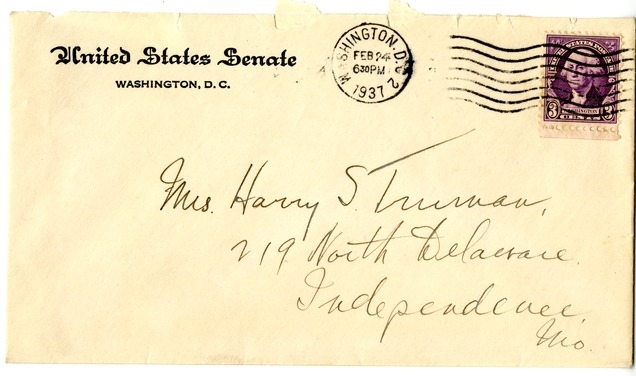 United States Senate
WASHINGTON, D. C.
WASHINGTON, D.C. 2
FEB 24
6 30 PM
1937
UNITED STATES POSTAGE
3 WASHINGTON 3
Mrs. Harry S. Truman,
219 North Delaware
Independence
Mo.